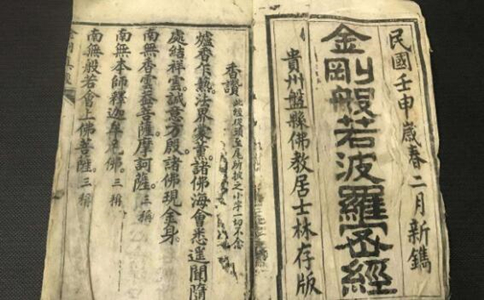 民國壬申歲春二月新鐫
金剛般若波羅密經
貴州盤縣佛教居士林存版
香讚 此經從頭至尾所批之小字一切不念
爐香乍爇法界蒙薰諸佛海會悉遙聞隨
處結祥雲。誠意方殷諸佛現全身。
南無香雲蓋菩薩摩訶薩。三稱
南無本師釋迦牟尼佛。三稱
南無般若會上佛菩薩。三稱